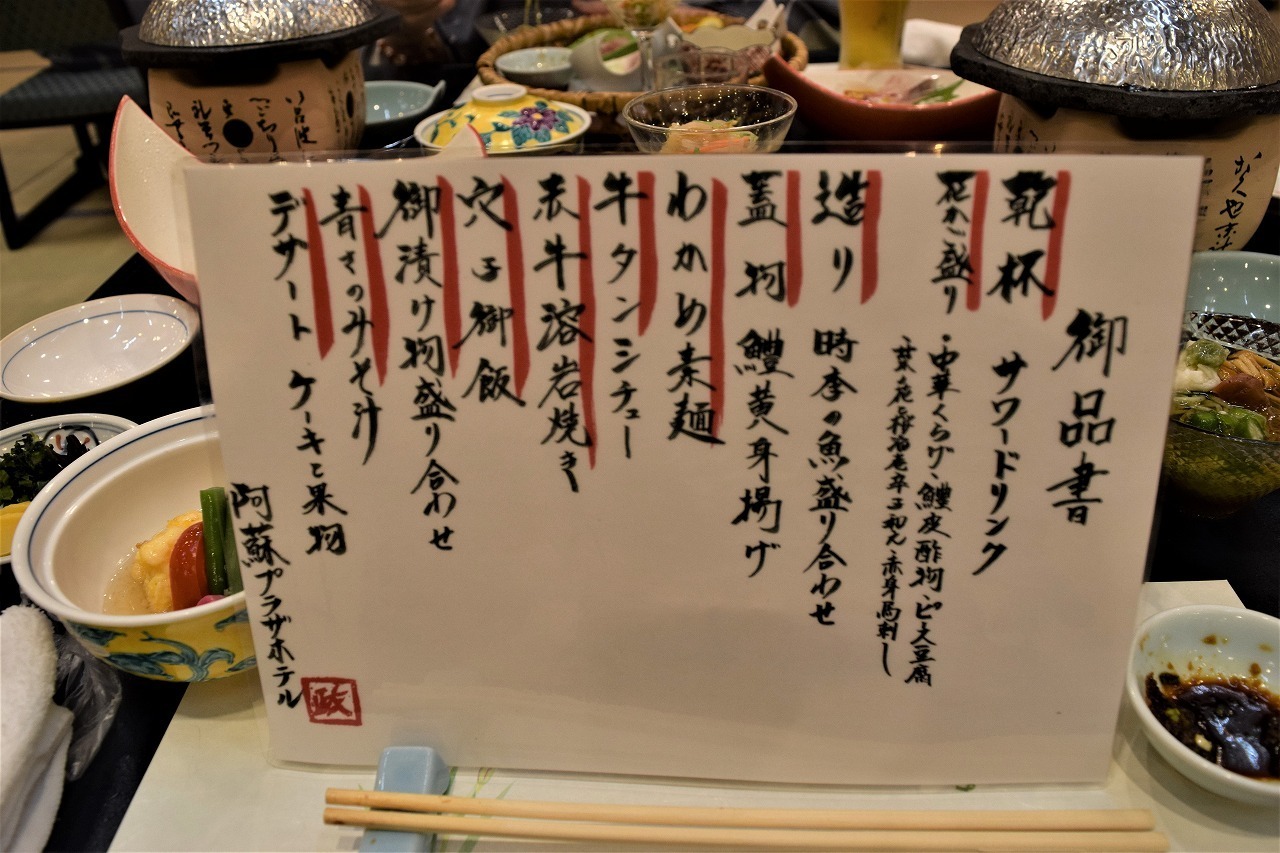 御品書
乾杯 サワードリンク
花かご盛り ・中華くらげ、鱧皮酢物、ピ豆腐
・菜花 辛子和え、赤身馬刺し
造り 時季の魚盛り合わせ
蓋物 鱧黄身揚げ
わかめ素麺
牛タンシチュー
赤牛溶岩焼き
穴子御飯
御漬け物盛り合わせ
青さのみそ汁
デザート ケーキと果物
阿蘇プラザホテル